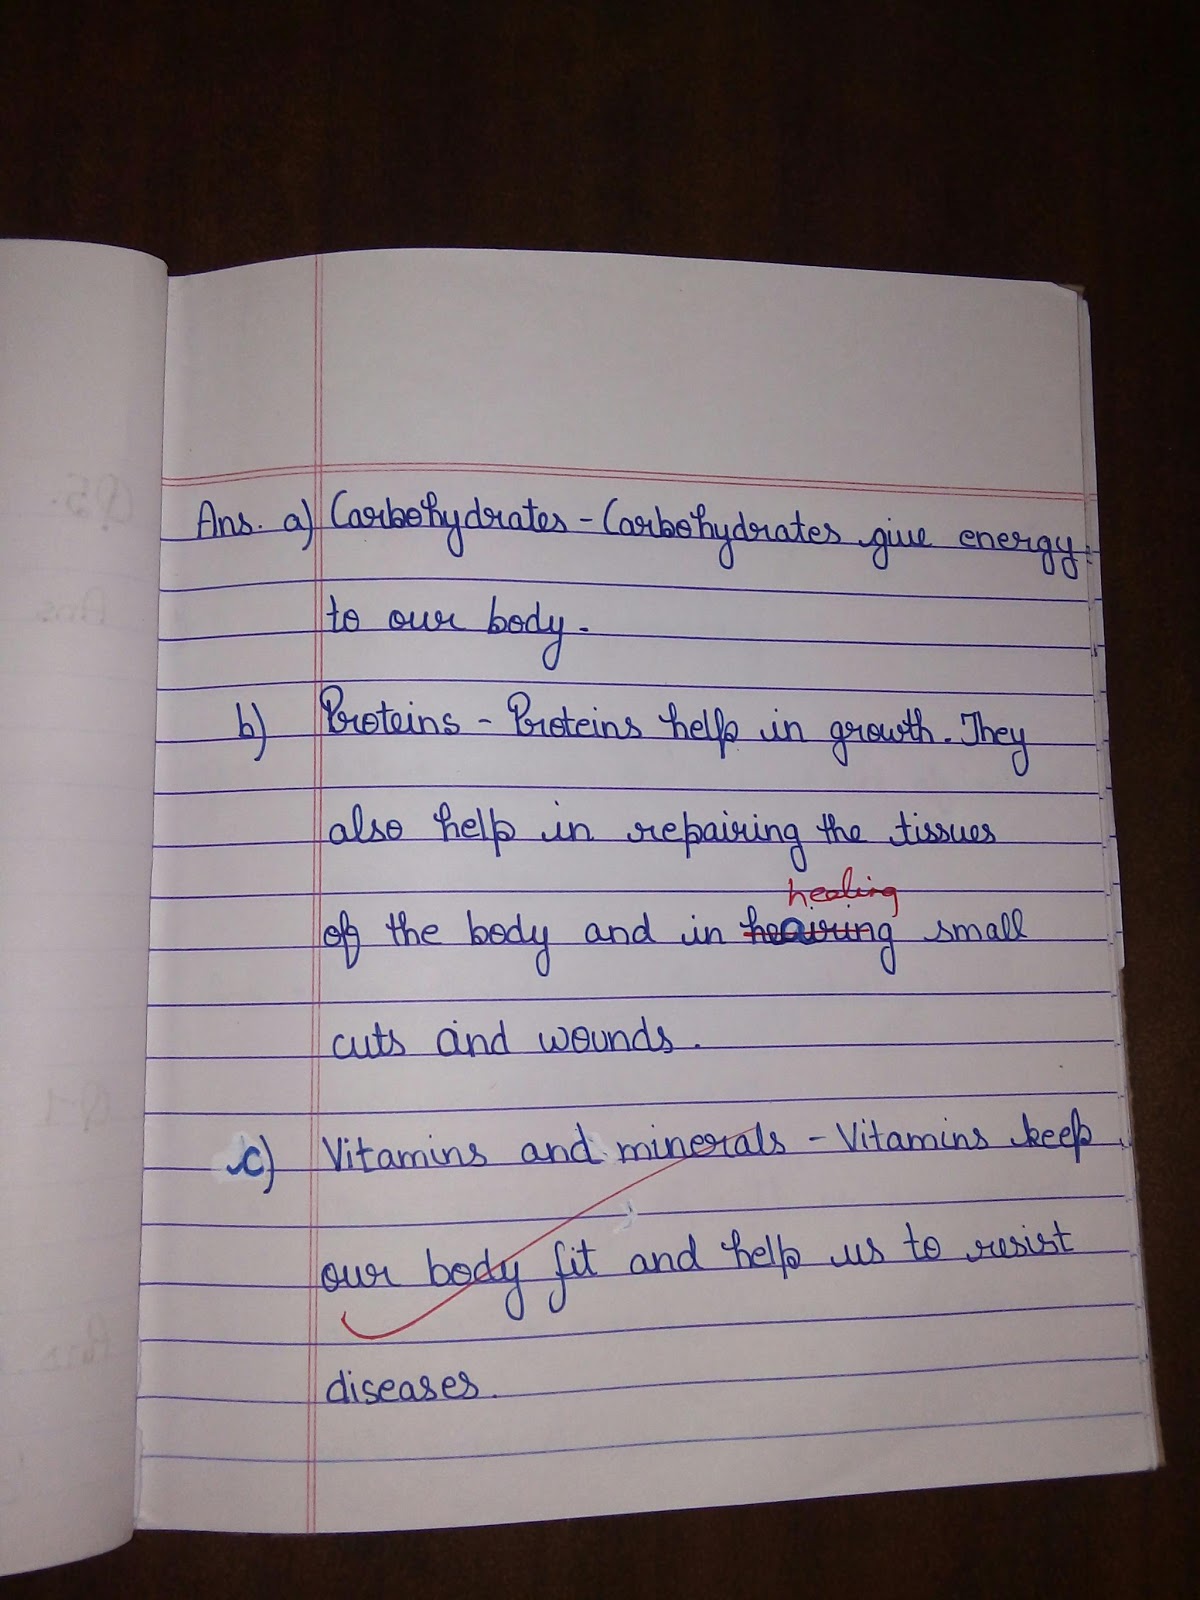 Ans. a) Carbohydrates - Carbohydrates give energy
to our body.
b) Proteins - Proteins help in growth. They
also help in repairing the tissues
healing
of the body and in small
cuts and wounds.
c) Vitamins and minerals - Vitamins keep
our body fit and help us to resist
diseases.